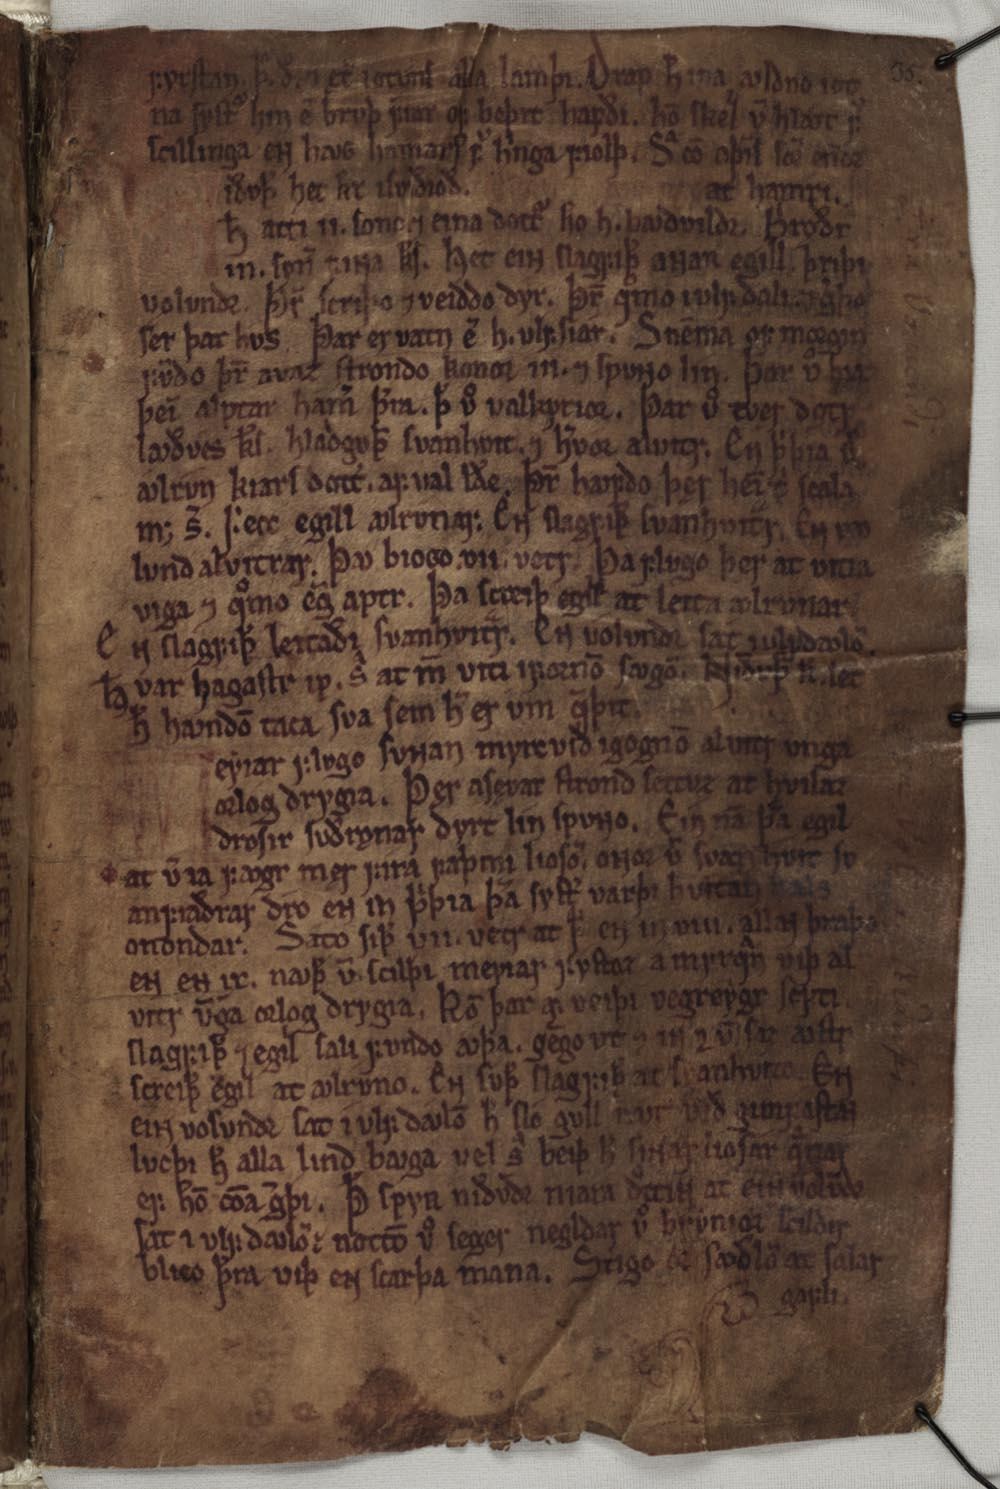 fyrstan þ. d. ⁊ ęt iotuns alla lamþi. Drap h̅ ina avldno iot
na systꝛ hin ē brvþ fiar of beþit hafdi. hō skell v̄ hlaut f̄
scillinga en havg hamars f̄ hringa fiolþ. Sa cō oþins sōr endr
iþvþ het kr̄ isviðioð. at hamri.
h̅ atti .ii. sono ⁊ eina dottꝛ hō h. bavdvildꝛ. Brodꝛ
.iii. syn̄ fiña k̅s. Het ein slagfiþꝛ anar egill þriþi
volundꝛ. þr̄ scriþo ⁊ veiddo dyr. þr̄ qv̄mo i ulfdali ⁊ gꝍrþo
ser þar hvs. Þar er vatn ē h. ulfsiar. Snēma of morgin
fvdo þr̄ a vaz strondo konor .iii. ⁊ spvno lin. Þar v̄ hia
þeī alptar ham̄ þra. þ vo valkyrior. Þar vo tvęr dotꝛ
lavdves k̅s. hladgvþꝛ svanhvit. ⁊ h̅vor alvitr. En þriþia v̄
avlrvn kiars dott. af val lāde. Þr̄ havfdo þęr heī t̄ scala
m; s̄. fecc egill avlrvnar. En slagfiþꝛ svanhvitr. En vo
lund alvitrar. Þav bioggo .vii. vetr. Þa flvgo þęr at vitia
viga ⁊ qvomo ēg aptr. Þa screiþ egill at leita avlrvnar.
En slagfiþꝛ leitadi svanhvitr. En volundꝛ sat i ulfdavlō.
h̅ var hagastr m̄. s̄ at m̄ viti i fornō savgō. Niðvþꝛ k̄. let
h̅ havndō taca sva sem h̅ er vm qv̄þit.
eyiar flvgo svñan myrcvið igognō alvitr vnga
orlog drygia. Þęr a sęvar strond settuz at hvilaz
drosir svðrǫnar dyrt lin spvño. Ein nā þra egil
at v̄ia fǫgr męr fira faþmi liosō. onor v̄ svanhvit sv
anfiadrar dro en in þriþia þra systꝛ varþi hvitan hals
onondar. Sato siþ .vii. vetr at þ en in .viii. allan þraþo
en en .ix. navþꝛ v̄ scilþi meyiar fystoz a myrqvan viþ al
vitr v̄ga orlog drygia. Kō þar af veiþi vegreygr
slagfiþꝛ ⁊ egil sali fvndo avþa. gēgo vt ⁊ iñ ⁊ v̄ saz avstr
screiþ egil at avlrvno. En svþꝛ slagfiþꝛ at svanhvito. En
ein volvndꝛ sat i ulfdavlō h̅ slo gvll ravt við gim fastan
lvcþi h̅ alla lind bavga vel s̄ beiþ h̅ siñar liosar qv̄nar
ef hō cōa gꝍrþi. Þ spyrr niðvdꝛ niara drottiñ at ein volvndꝛ
sat i ulfdavlō. nottō fo seger negldar vo brynior scildir
blico þra viþ en scarþa mana. Stigo or savdlō at salar
gafli.